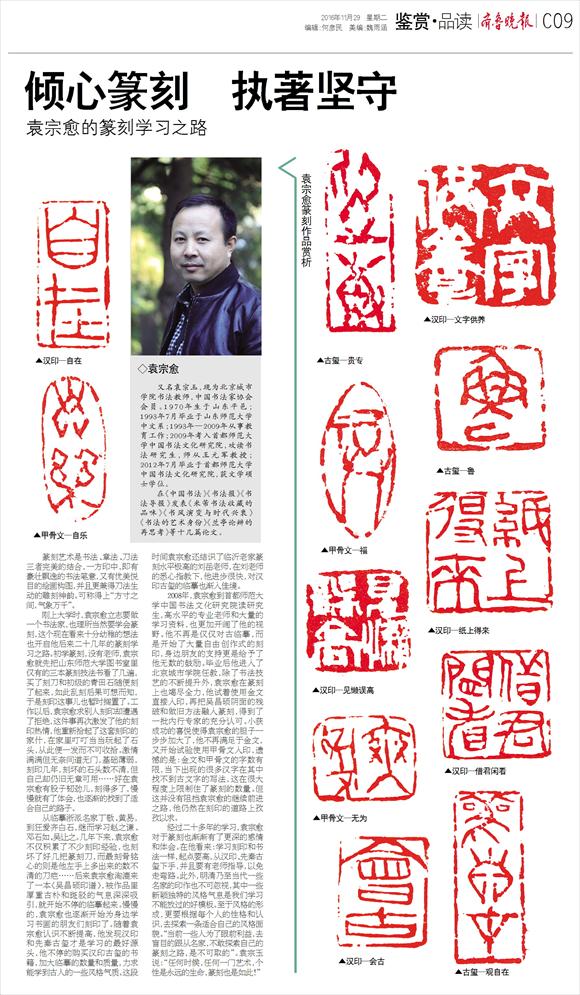 2016年11月29 星期二
编辑:何彦民 美编:魏雨涵
鉴赏·品读
齐鲁晚报
C09
倾心篆刻 执著坚守
袁宗愈的篆刻学习之路
袁宗愈篆刻作品赏析
▲汉印—自在
▲甲骨文—自乐
◇袁宗愈
又名袁宗玉,现为北京城市
学院书法教师,中国书法家协会
会员。1970年生于山东平邑;
1993年7月毕业于山东师范大学
中文系;1993年—2009年从事教
育工作;2009年考入首都师范大
学中国书法文化研究院,攻读书
法研究生,师从王元军教授;
2012年7月毕业于首都师范大学
中国书法文化研究院,获文学硕
士学位。
在《中国书法》《书法报》《书
法导报》发表《米芾书法收藏的
品味》《书风演变与时代兴衰》
《书法的艺术身份》《兰亭论辨的
再思考》等十几篇论文。
篆刻艺术是书法、章法、刀法
三者完美的结合。一方印中,即有
豪壮飘逸的书法笔意,又有优美悦
目的绘画构图,并且更兼得刀法生
动的雕刻神韵,可称得上“方寸之
间,气象万千”。
刚上大学时,袁宗愈立志要做
一个书法家,也理所当然要学会篆
刻,这个现在看来十分幼稚的想法
也开启他后来二十几年的篆刻学
习之路。初学篆刻,没有老师,袁宗
愈就先把山东师范大学图书室里
仅有的三本篆刻技法书看了几遍,
买了刻刀和初级的青田石随便刻
了起来,如此乱刻后果可想而知,
于是刻印这事儿也暂时搁置了。工
作以后,袁宗愈求别人刻印却遭遇
了拒绝,这件事再次激发了他的刻
印热情,他重新拾起了这套刻印的
家什,在家里叮叮当当玩起了石
头,从此便一发而不可收拾,激情
满满但无奈问道无门,基础薄弱。
刻印几年,刻坏的石头数不清,但
自己却仍旧无章可用……好在袁
宗愈有股子韧劲儿,刻得多了,慢
慢就有了体会,也逐渐的找到了适
合自己的路子。
从临摹浙派名家丁敬、黄易,
到狂爱齐白石,继而学习赵之谦、
邓石如、吴让之。几年下来,袁宗愈
不仅积累了不少刻印经验,也刻
坏了好几把篆刻刀,而最刻骨铭
心的则是他左手上多出来的数不
清的刀疤……后来袁宗愈淘遭来
了一本《吴昌硕印谱》,被作品里
厚重古朴和斑驳的气息深深吸
引,就开始不停的临摹起来,慢慢
的,袁宗愈也逐渐开始为身边学
习书画的朋友们刻印了。随着袁
宗愈认识不断提高,他发现汉印
和先秦古玺才是学习的最好源
头,他不停的购买汉印古玺的书
籍,加大临摹的数量和质量,力求
能学到古人的一些风格气质。这段
时间袁宗愈还结识了临沂老家篆
刻水平极高的刘岳老师,在刘老师
的悉心指教下,他进步很快,对汉
印古玺的临摹也渐入佳境。
2008年,袁宗愈到首都师范大
学中国书法文化研究院读研究
生,高水平的专业老师和大量的
学习资料,也更加开阔了他的视
野,他不再是仅仅对古临摹,而
是开始了大量自由创作式的刻
印,身边朋友的支持更是给予了
他无数的鼓励。毕业后他进入了
北京城市学院任教,除了书法技
艺的不断提升外,袁宗愈在篆刻
上也竭尽全力,他试着使用金文
直接入印,再把吴昌硕阴面的残
破和做旧方法融入篆刻,得到了
一批内行专家的充分认可,小获
成功的喜悦使得袁宗愈的胆子一
步步加大了,他不再满足于金文,
又开始试验使用甲骨文入印,遗
憾的是:金文和甲骨文的字数有
限,当下出现的很多汉字在其中
找不到古文字的写法,这在很大
程度上限制住了篆刻的数量。但
这并没有阻挡袁宗愈的继续前进
之路,他仍然在刻印的道路上孜
孜以求。
经过二十多年的学习,袁宗愈
对于篆刻也渐渐有了更深的感情
和体会。在他看来:学习刻印和书
法一样,起点要高,从汉印、先秦古
玺下手,并且要有老师指导,以免
走弯路。此外,明清乃至当代一些
名家的印作也不可忽视,其中一些
新颖独特的风格气息是我们学习
不能放过的好模板。至于风格的形
成,更要根据每个人的性格和认
识,去探索一条适合自己的风格面
貌。“当前一些人为了眼前利益,去
盲目的跟从名家,不敢探索自己的
篆刻之路,是不可取的”,袁宗玉
说:“任何时候,任何一门艺术,个
性是永远的生命,篆刻也是如此!”
▲古玺—贵专
▲汉印—文字供养
▲甲骨文—福
▲古玺—鲁
▲汉印—见懒误高
▲汉印—纸上得来
▲甲骨文—无为
▲汉印—借君闲看
▲汉印—会古
▲古玺—观自在